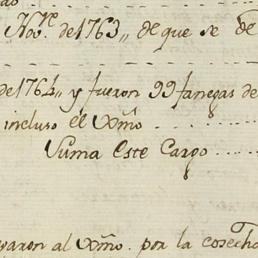 Nov.re de 1763,, de que se de
de 1764,, y fueron 99 fanegas de
incluso el Dmo
Suma Este Cargo
garon al Dmo. por la cosecha